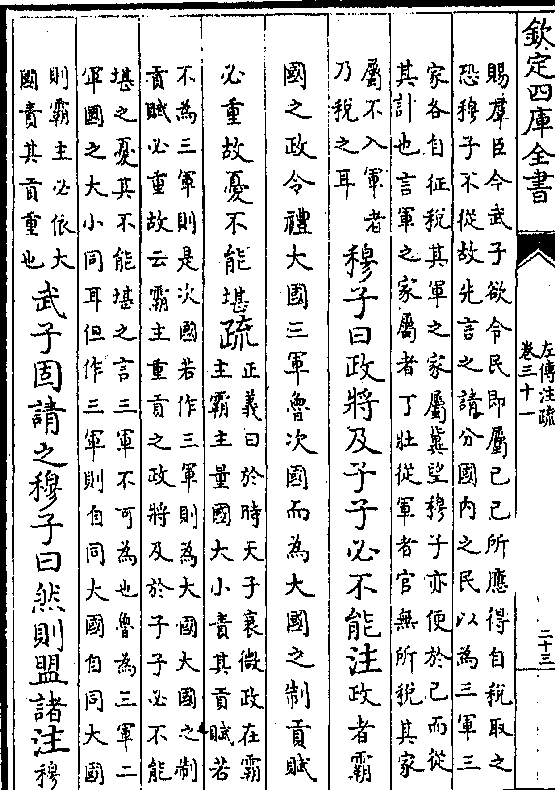 欽定四庫全書
左傳注疏
卷三十一
二十三
賜羣臣今武子欲令民即屬已已所應得自税取之
恐穆子不從故先言之請分國内之民以為三軍三
家各自征税其軍之家屬冀望穆子亦便於已而從
其計也言軍之家屬者丁壯從軍者官無所税其家
屬不入軍者
乃税之耳
穆子曰政將及子子必不能注政者霸
國之政令禮大國三軍魯次國而為大國之制貢賦
必重故憂不能堪疏
正義曰於時天子衰微政在霸
主霸主量國大小責其貢賦若
不為三軍則是次國若作三軍則為大國大國之制
貢賦必重故云霸主重貢之政將及於子子必不能
堪之憂其不能堪之言三軍不可為也魯為三軍二
軍國之大小同耳但作三軍則自同大國自同大國
則霸主必依大
國責其貢重也
武子固請之穆子曰然則盟諸注穆